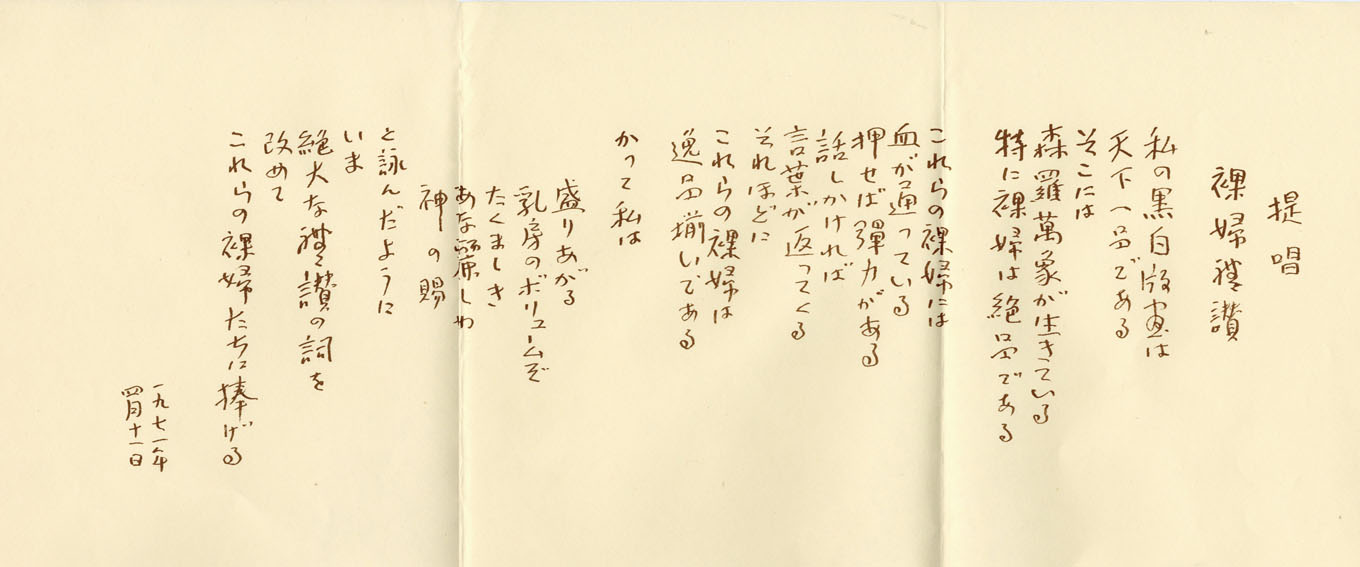 提唱
裸婦禮讃
私の黒白版画は
天下一品である
そこには
森羅萬象が生きている
特に裸婦は絶品である
これらの裸婦には
血が通っている
押せば彈力がある
話しかければ
言葉が返ってくる
それほどに
これらの裸婦は
逸品揃いである
かつて私は
盛りあがる
乳房のボリュームぞ
たくましき
あな
神の賜
と詠んだように
いま
絶大な禮讃の詞を
改めて
これらの裸婦たちに捧げる
一九七一年
四月十一日